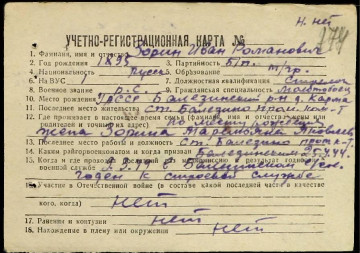 Н. нет
174
УЧЕТНО-РЕГИСТРАЦИОННАЯ КАРТА №
1. Фамилия, имя и отчество Зорин Иван Романович
2. Год рождения 1895 3. Партийность б/п
4. Национальность русск 5. Образование гр.
6. На ВУС 7. Должностная квалификация Стрелок
8. Военное звание р-с. 9. Гражданская специальность
10. Место рождения Балезинский р-н д. Карта
11. Последнее место жительства ст. Балезино
12. Где проживает в настоящее время семья (фамилия, имя и отчество жены или
родителей и точный их адрес) по месту рождения
жена Зорина
13. Последнее место работы и должность ст. Балезино
14. Каким райвоенкоматом и когда призван Балезинским 25.9.44.
15. Когда и где проходил комиссию и результат годности к
военной службе Балезинском
годен к строевой службе
16. Участие в Отечественной войне (в составе какой последней части в качестве
кого, когда) нет
17. Ранения и контузии нет
18. Нахождение в плену или окружении нет